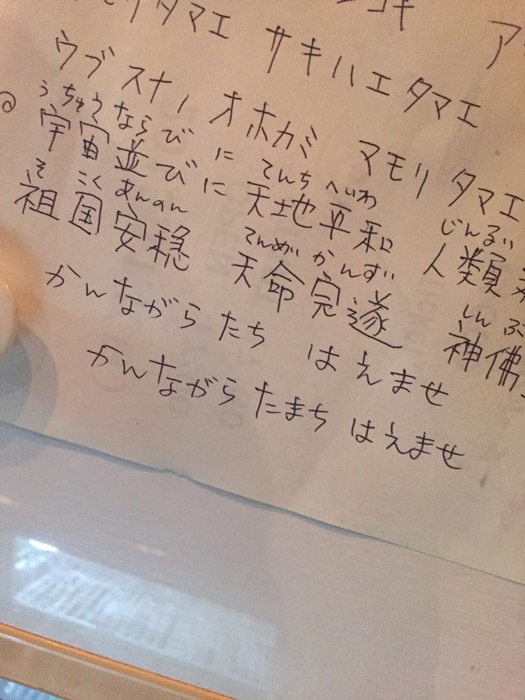 マモリタマエ サキハエタマエ
ウブスナノ オホカミ マモリタマエ
うちゅうならび に てんちへいわ じんるい
宇宙並びに天地平和 人類
そこくあんのん てんめいかんすい しんぶ
祖国安穏 天命完遂 神佛
かんながらたち はえませ
かんながらたまち はえませ